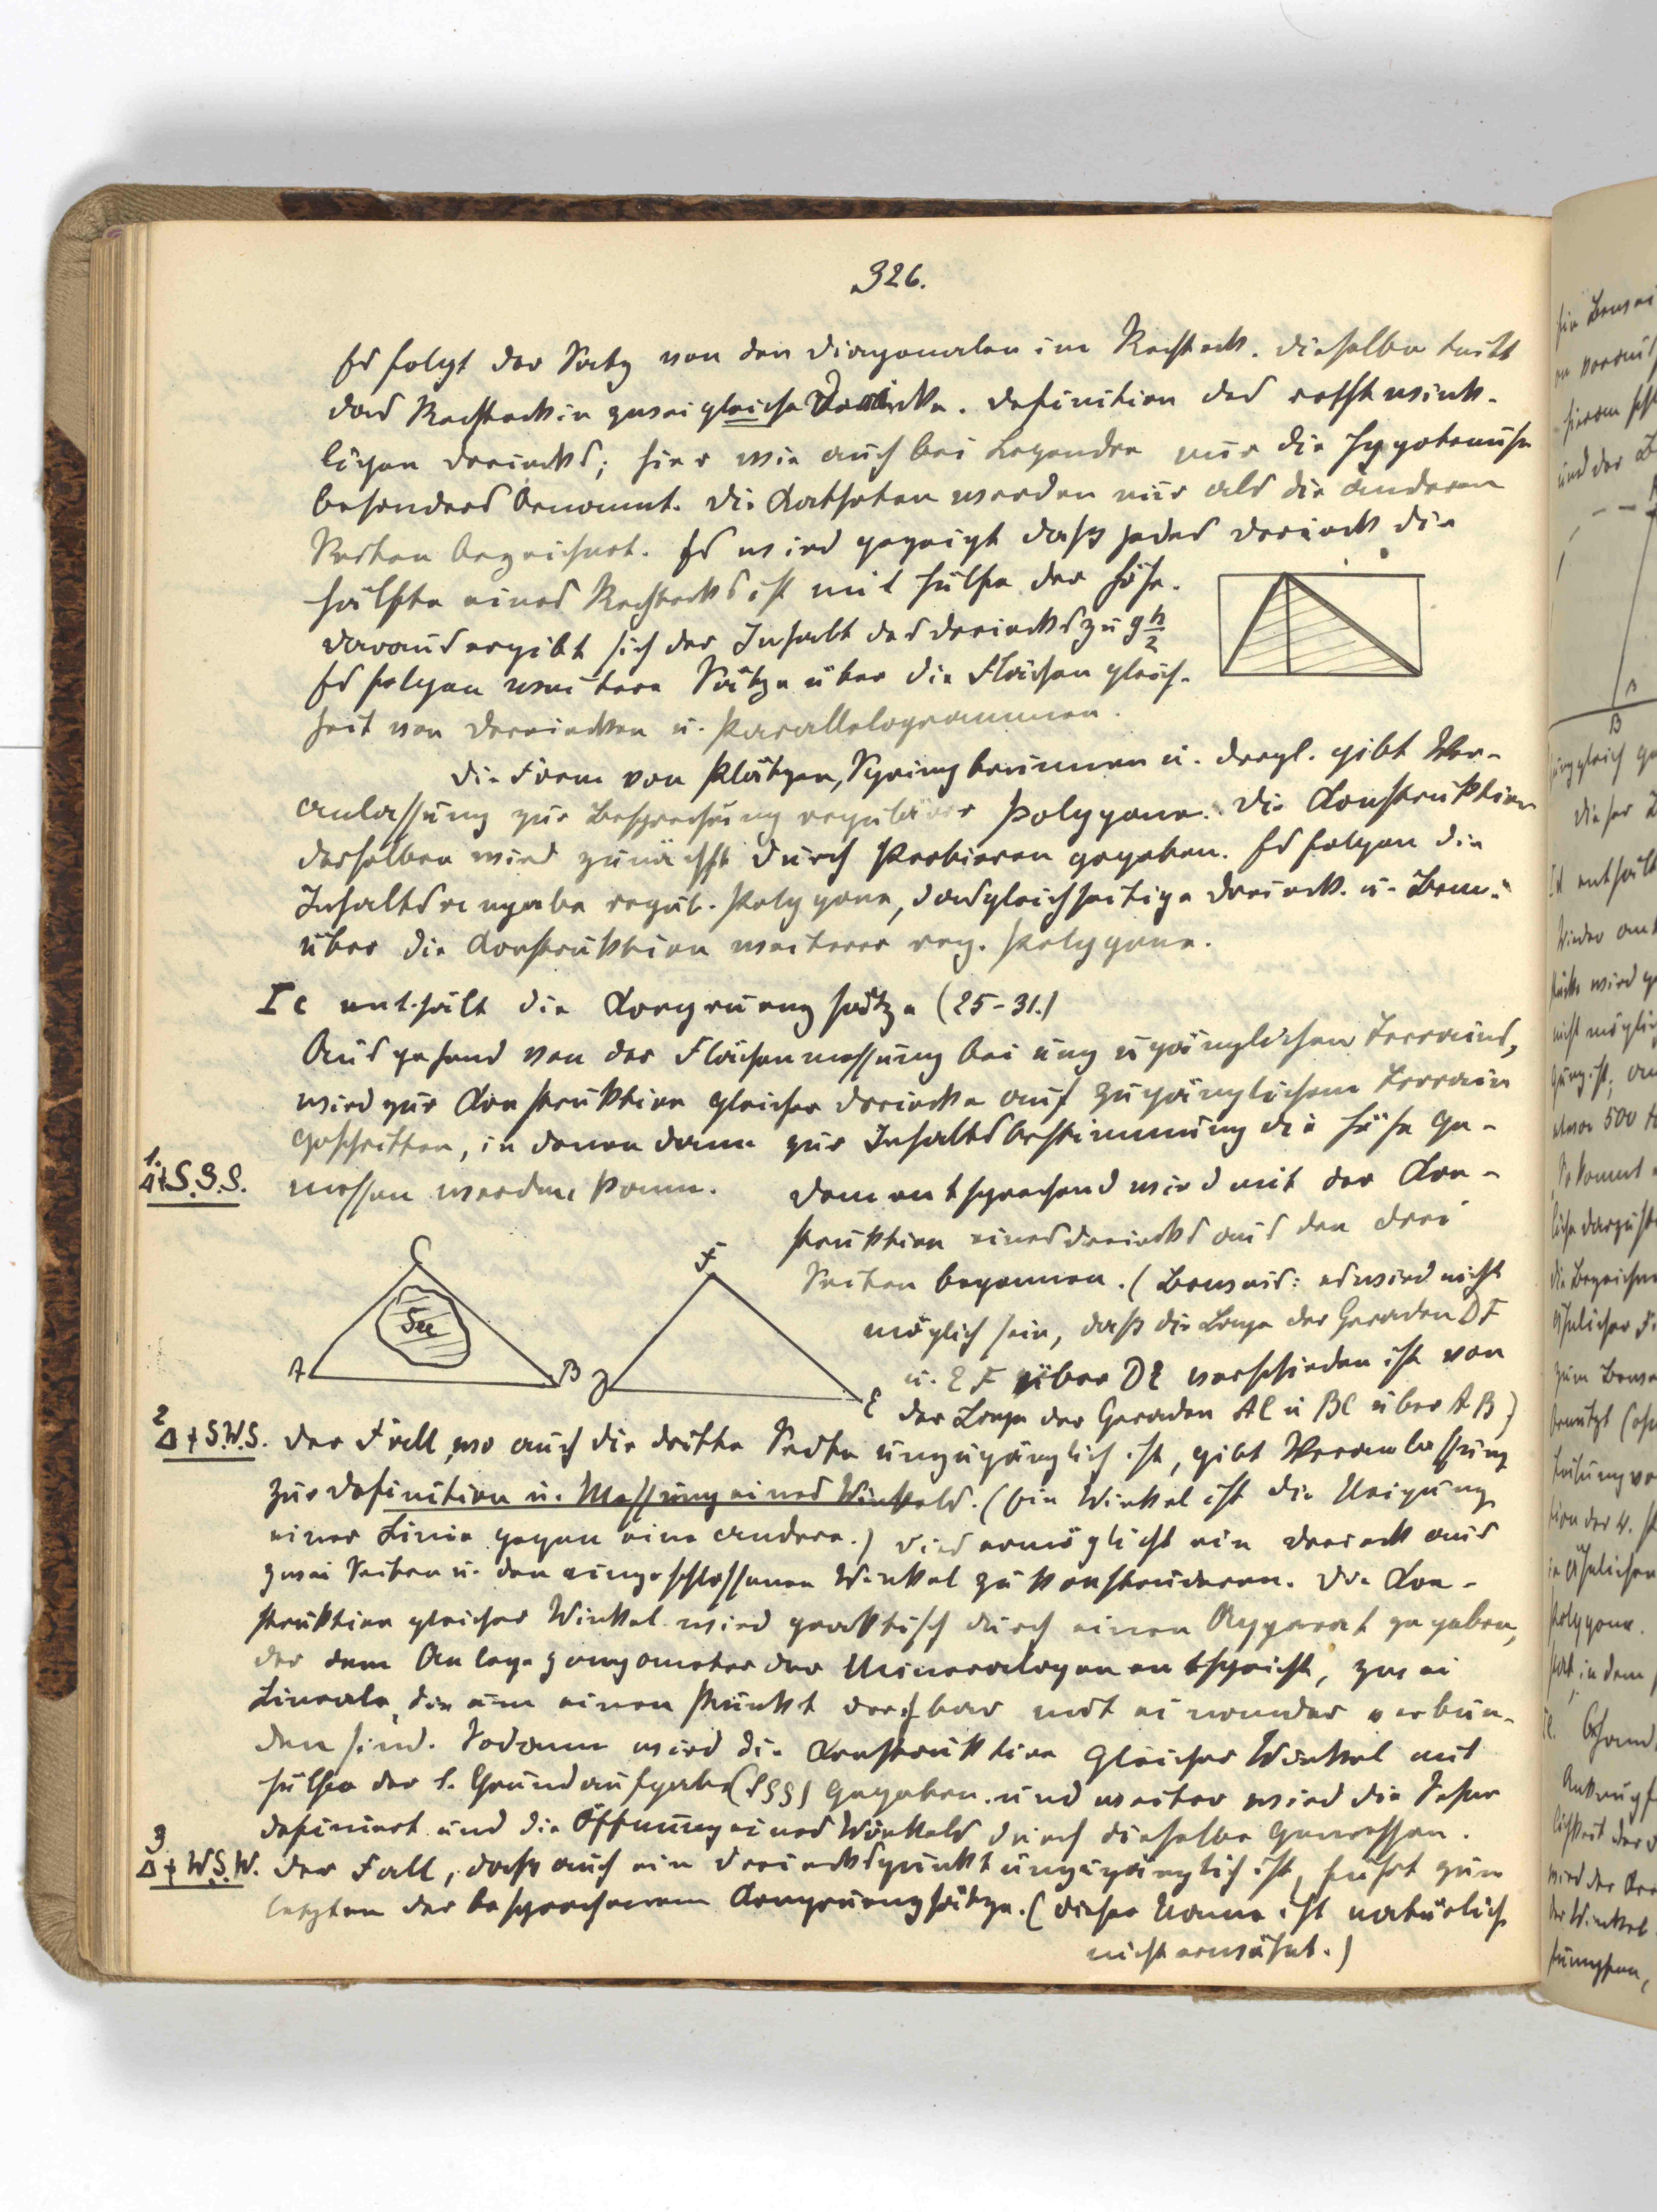 326.
Es folgt der Satz von den Diagonalen im Rechteck. Dieselbe teilt
das Rechteck in zwei gleiche Dreiecke. Definition des rechtwink-
ligen Dreiecks; hier wie auch bei Legendre nur die Hypotenuse
besonders benannt. Die Katheten werden nur als die anderen
Seiten bezeichnet. Es wird gezeigt daß jedes Dreieck die
Hälfte eines Rechtecks ist mit Hülfe der Höhe.
Daraus ergibt sich der Inhalt des Dreiecks zu g h/2
Es folgen weitere Sätze über die Flächengleich-
heit von Dreiecken u. Parallelogrammen.
Die Form von Plätzen, Springbrunnen u. dergl. gibt Ver-
anlassung zur Besprechung regulärer Polygone. Die Konstruktion
derselben wird zunächst durch Probieren gegeben. Es folgen die
Inhaltsangabe regul. Polygone, das gleichseitige Dreieck u. Bem.
über die Konstruktion weiterer reg. Polygone.
Ic enthält die Kongruenzsätze (25-31.)
Ausgehend von der Flächenmessung bei unzugänglichem Terrains,
wird zur Konstruktion gleicher Dreiecke auf zugänglichem Terrain
geschritten, in denen dann zur Inhaltsbestimmung die Höhe ge-
1. Δ+S.S.S.
messen werden kann. Dementsprechend wird mit der Kon-
struktion eines Dreiecks aus den drei
Seiten begonnen. (Beweis: es wird nicht
möglich sein, daß die Lage der Geraden DF
u. EF über DE verschieden ist von
der Lage der Geraden AC u BC über AB)
C
See
A
B
F
D
E
2 Δ+S.W.S.
Der Fall, wo auch die dritte Seite unzugänglich ist, gibt Veranlassung
zur Definition u. Messung eines Winkels. (Ein Winkel ist die Neigung
einer Linie gegen eine andere.) Dies ermöglicht ein Dreieck aus
zwei Seiten u. den eingeschlossenen Winkel zu konstruieren. Die Kon-
struktion gleicher Winkel wird praktisch durch einen Apparat gegeben,
der dem Anlegegongometer der Mineralogen entspricht, zwei
Lineale, die um einen Punkt drehbar mit einander verbun-
den sind. Sodann wird die Konstruktion gleicher Winkel mit
Hülfe der 1. Grundaufgabe (SSS) gegeben und weiter wird die Sehne
definiert und die Öffnung eines Winkels durch dieselbe gemessen.
3 Δ+W.S.W.
Der Fall, daß auch ein Dreieckspunkt unzugänglich ist, führt zum
letzten der besprochenen Kongruenzsätze. (Dieser Name ist natürlich
nicht erwähnt.)